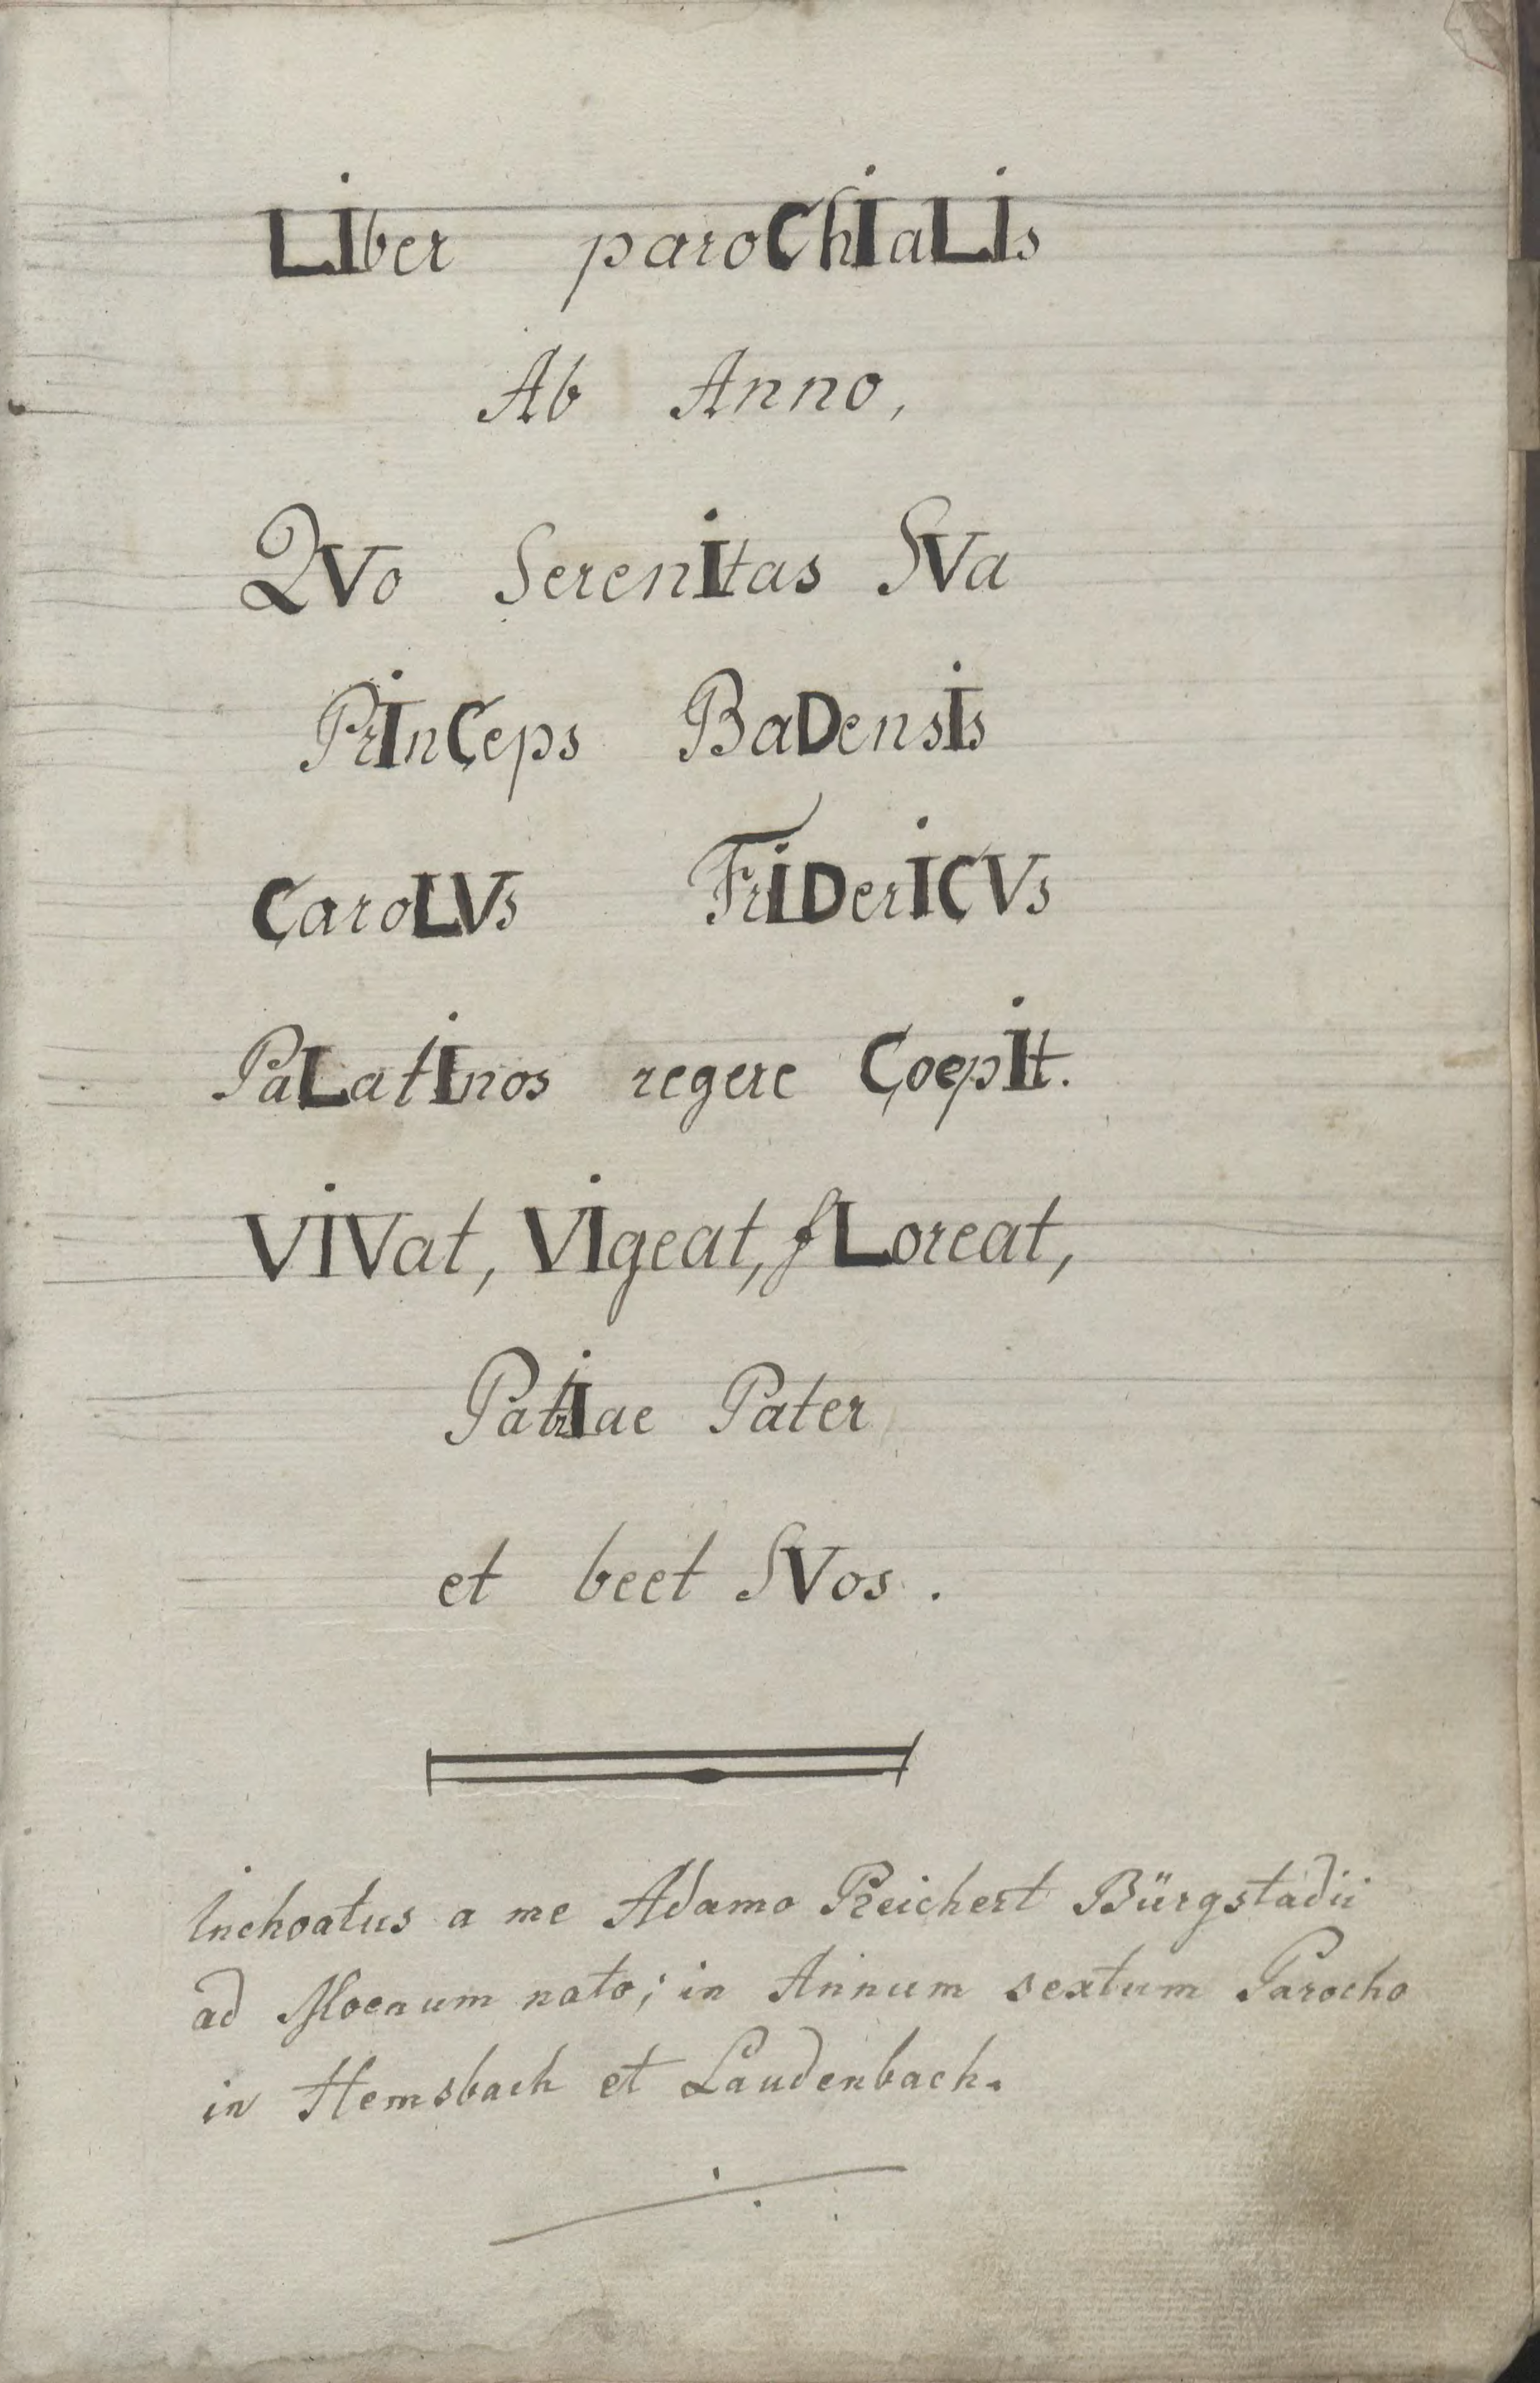 LIber paroChIaLIs
Ab Anno,
QVo SerenItas SVa
PrInCeps BaDensIs
CaroLVs FrIDerICVs
PaLatInos regere CoepIt.
VIVat, VIgeat, fLoreat,
PatrIae Pater
et beet SVos.
Inchoatus a me Adamo Reichert Bürgstadii
ad Moenum nato; in Annum sextum Parocho
in Hemsbach et Laudenbach.